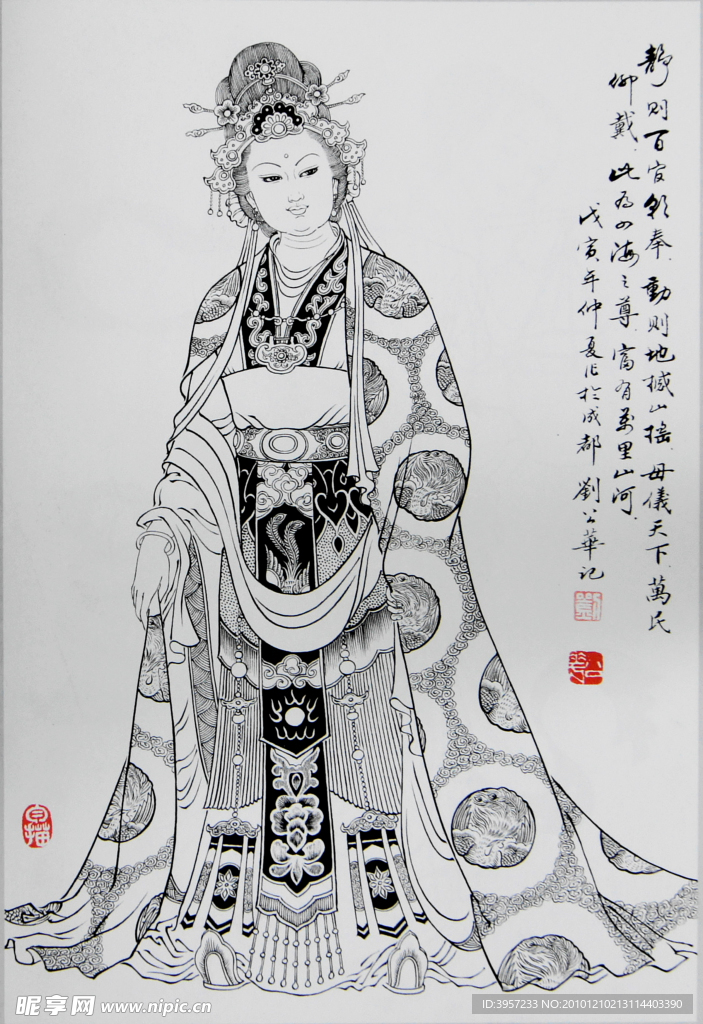 靜則百官朝奉動則地撼山搖母儀天下萬民
仰戴此為四海之尊富有萬里山河
戊寅年仲夏作於成都劉公華記
白描
昵享网 www.nipic.cn
ID:3957233 NO:20101210213114403390